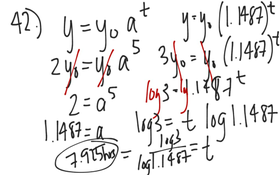 42.)
y = y₀ aᵗ
2y₀ = y₀ a⁵
2 = a⁵
1.1487 = a
y = y₀ (1.1487)ᵗ
3y₀ = y₀ (1.1487)ᵗ
log 3 = log 1.1487ᵗ
log 3 = t log 1.1487
7.925 hrs = log 3 / log 1.1487 = t